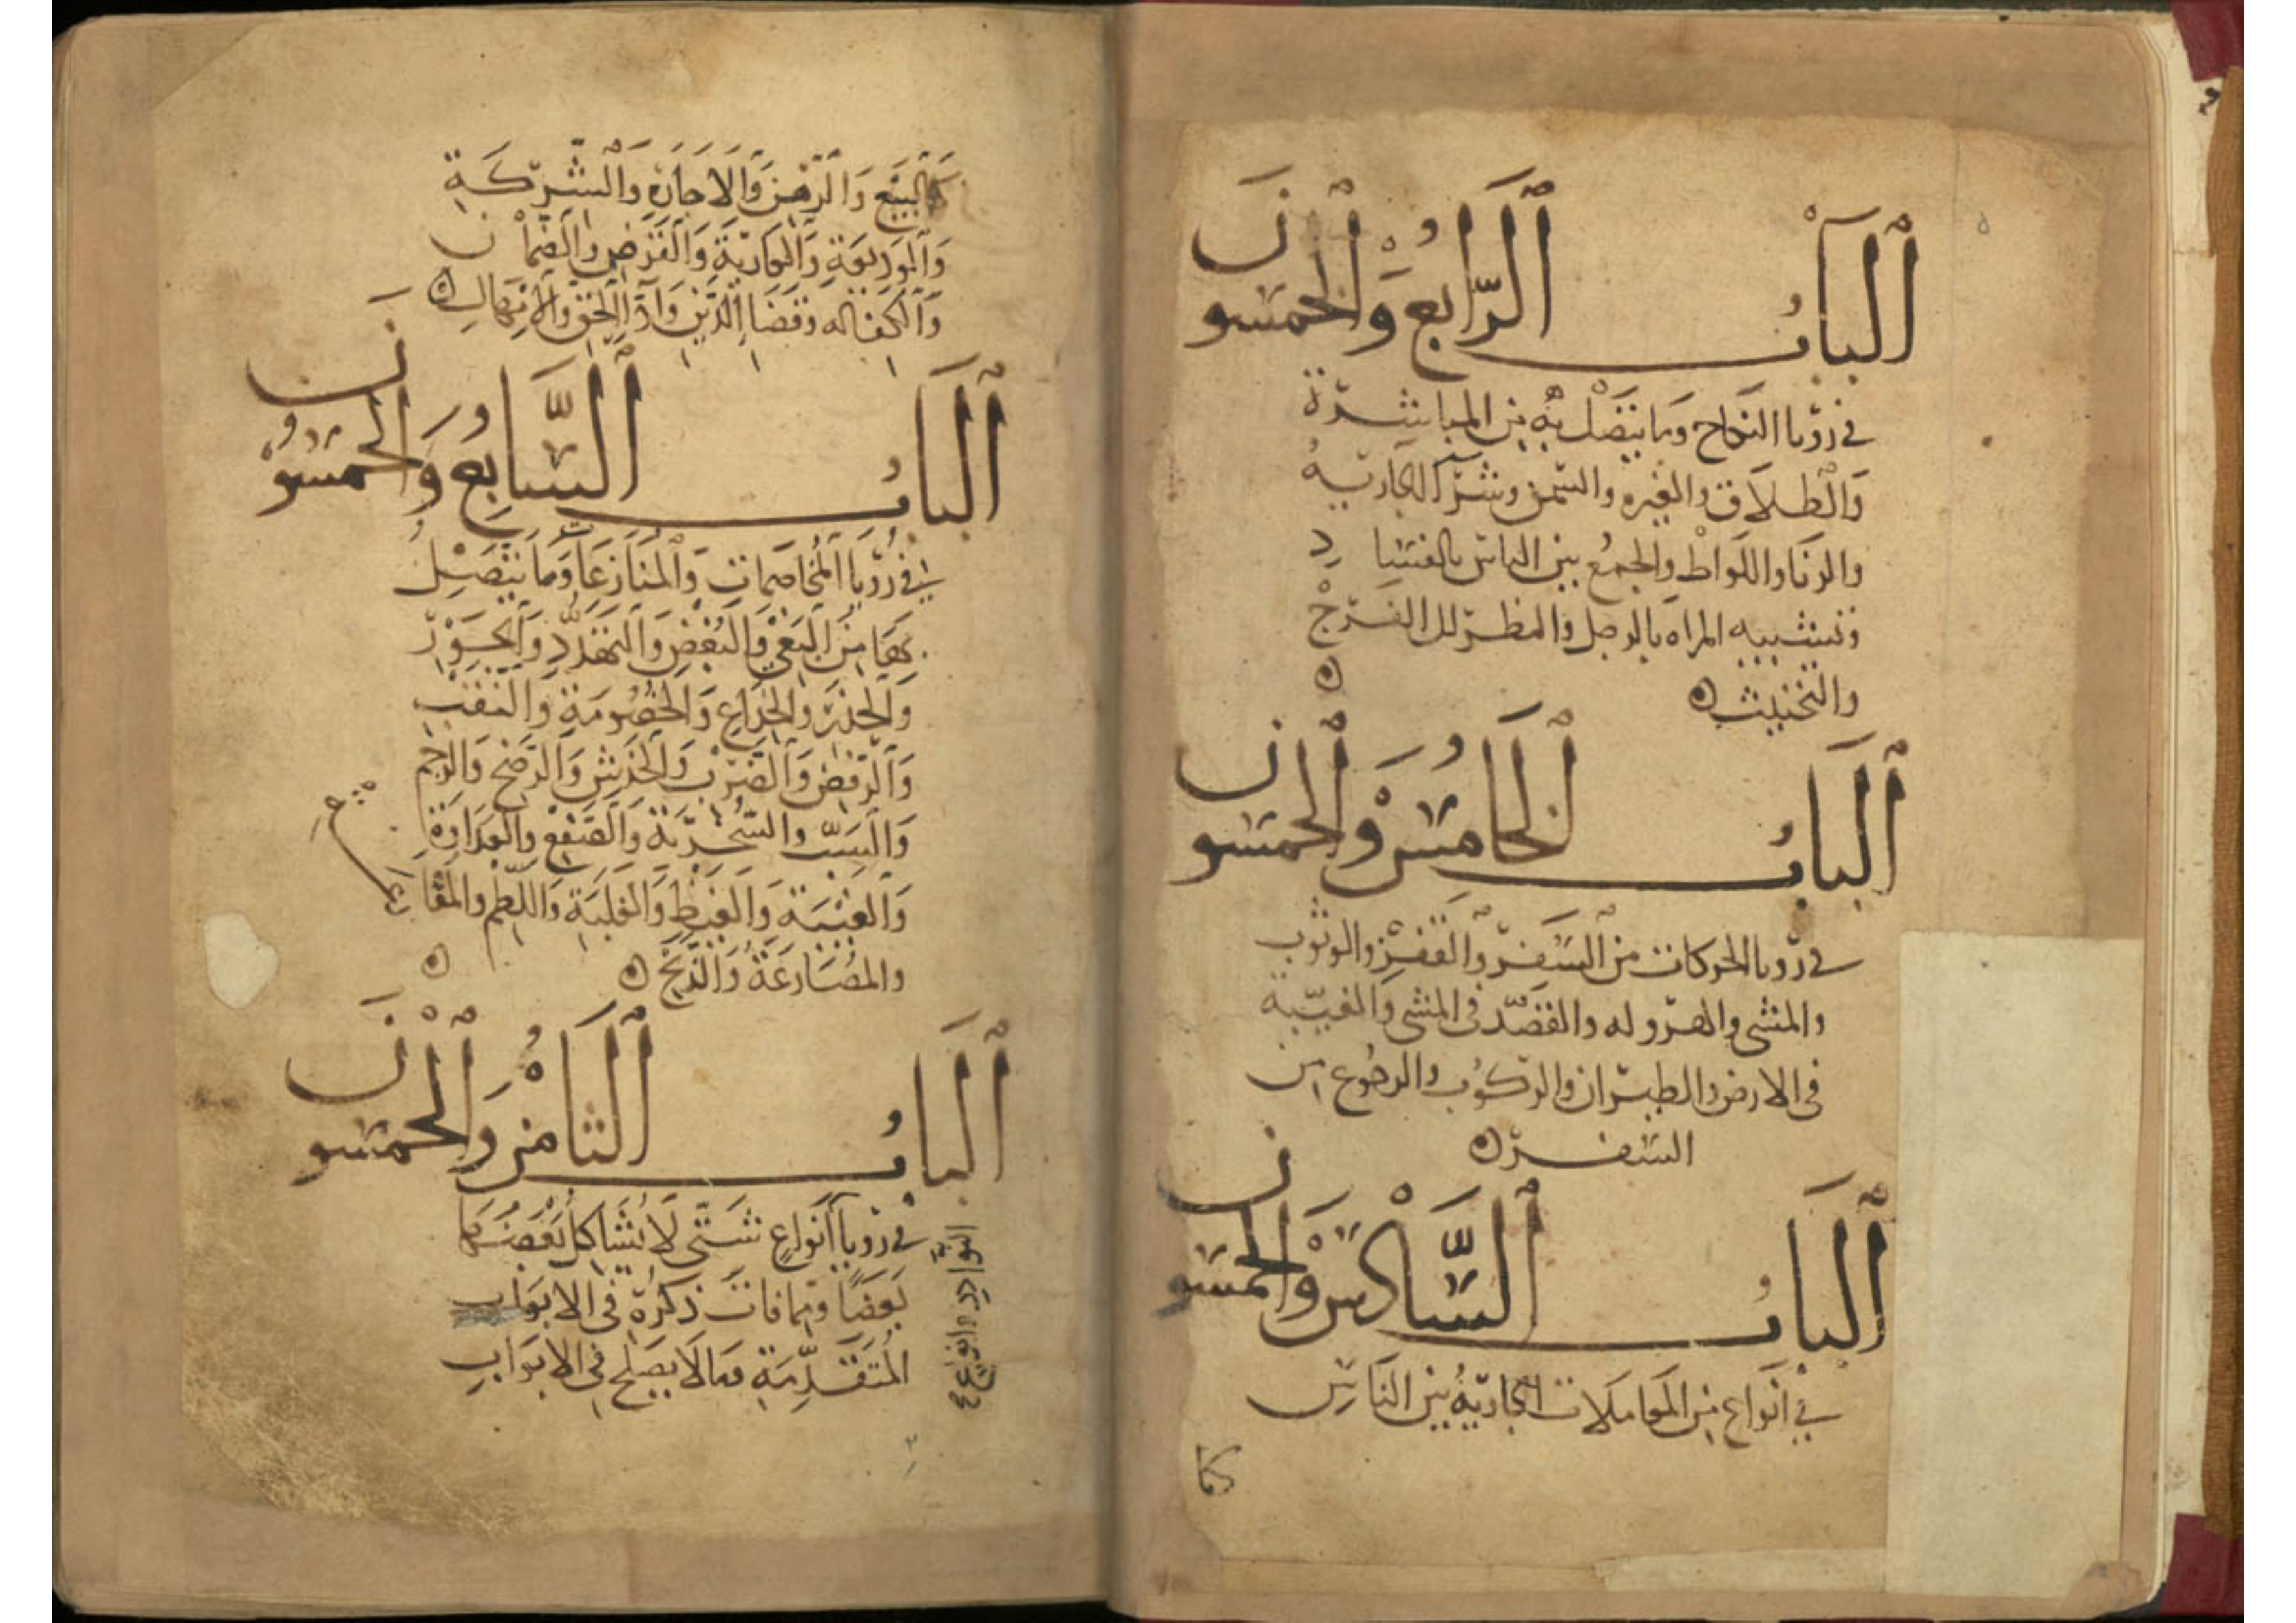 الباب الرابع والخمسون
في رؤيا النكاح وما يتصل به من المباشرة
والطلاق والغيرة والسمن وشرا الجارية
والزنا واللواط والجمع بين الناس بالفساد
وتشبيه المراه بالرجل والنظر الى الفرج
والتخنيث
الباب الخامس والخمسون
في رؤيا الحركات من السفر والقفز والوثوب
والمشي والهروله والقصد في المشي والغيبة
في الارض والطيران والركوب والرجوع من
السفر
الباب السادس والخمسون
في انواع من المعاملات الجارية بين الناس
كالبيع والرهن والاجارة والشركة
والوديعة والعارية والقرض والضمان
والكفاله وقضا الدين وادا الحق والامهال
الباب السابع والخمسون
في رؤيا المخاصمات والمنازعات وما يتصل
بها من البغي والبغض والتهدد والجور
والخداع والخصومة
والرفض والضرب والخدش والرضخ والرجم
والسب والسخرية والصفع والعداوة
والغيبة والغيظ والغلبة واللطم
والمصارعة والذبح
الباب الثامن والخمسون
في رؤيا انواع شتى لا يشاكل بعضها
بعضا وما فات ذكره في الابواب
المتقدمة وما لا يصلح في الابواب
النوادر وانواع